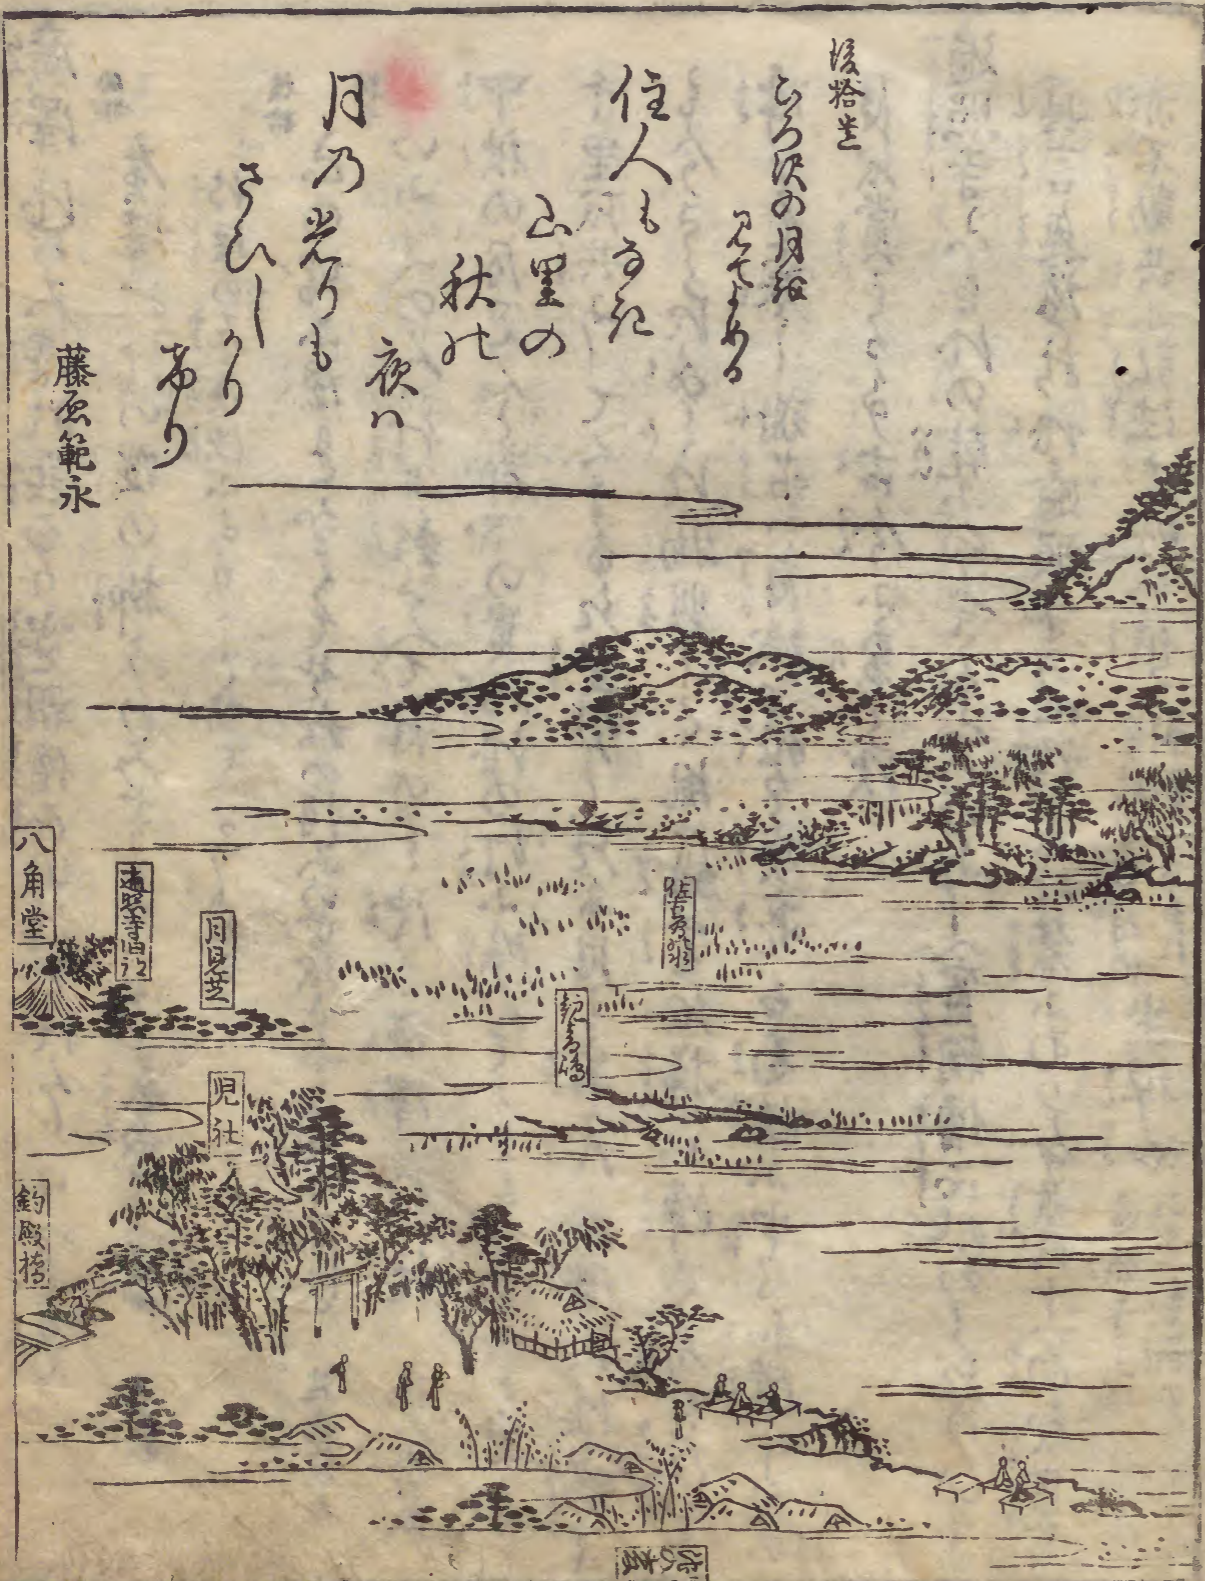 後拾遺
ひろ沢の月を
見てよめる
住人もなき
山里の
秋の
夜は
月の光りも
さひしかり
けり
藤原範永
八角堂
遍照寺旧跡
月見芝
観音嶋
児社
釣殿橋